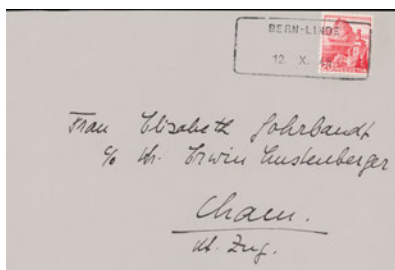 BERN-LINDE
12. X.
Frau Elisabeth Gohrbandt
c/o Hr. Erwin Lustenberger
Cham.
Kt. Zug.